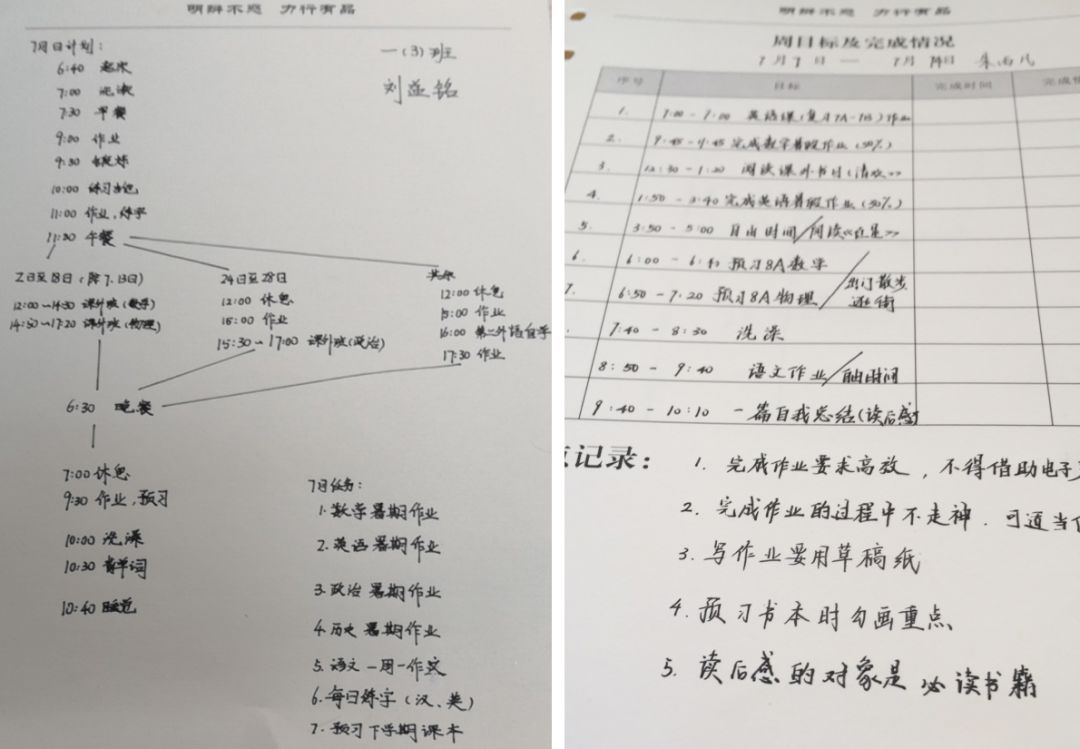 明辨不惑 力行有品
7月日计划：
一（3）班
6:40 起床
刘益铭
7:00 洗漱
7:30 早餐
9:00 作业
9:30 锻炼
10:00 练习
11:00 作业，练字
11:30 午餐
2日至18日（除7.13日）
12:00~14:30 课外班（数学）
14:50~17:20 课外班（物理）
24日至28日
12:00 休息
15:00 作业
15:30~17:00 课外班（政治）
其余
12:00 休息
15:00 作业
16:00 第二外语自学
17:30 作业
6:30 晚餐
7:00 休息
9:30 作业，预习
10:00 洗澡
10:30 背单词
10:40 睡觉
7月任务：
1. 数学暑期作业
2. 英语暑期作业
3. 政治暑期作业
4. 历史暑期作业
5. 语文一周一作文
6. 每日练字（汉、英）
7. 预习下学期课本
明辨不惑 力行有品
周目标及完成情况
7月7日 — 7月14日
序号 目标 完成时间 完成
1. 7:00 - 9:00 英语课（复习7A-7B）作业
2. 9:45 - 11:45 完成数学暑假作业（50%）
3. 12:30 - 1:20 阅读课外书
4. 1:50 - 3:40 完成英语暑假作业（50%）
5. 3:50 - 5:00 自由时间/阅读
6. 6:00 - 6:45 预习8A数学
7. 6:50 - 7:20 预习8A物理/出门散步 逛街
7:40 - 8:30 洗澡
8:50 - 9:40 语文作业/自由时间
9:40 - 10:10 一篇自我总结（读后感）
记录：
1. 完成作业要求高效，不得借助电子
2. 完成作业的过程中不走神．可适当
3. 写作业要用草稿纸
4. 预习书本时勾画重点
5. 读后感的对象是必读书籍